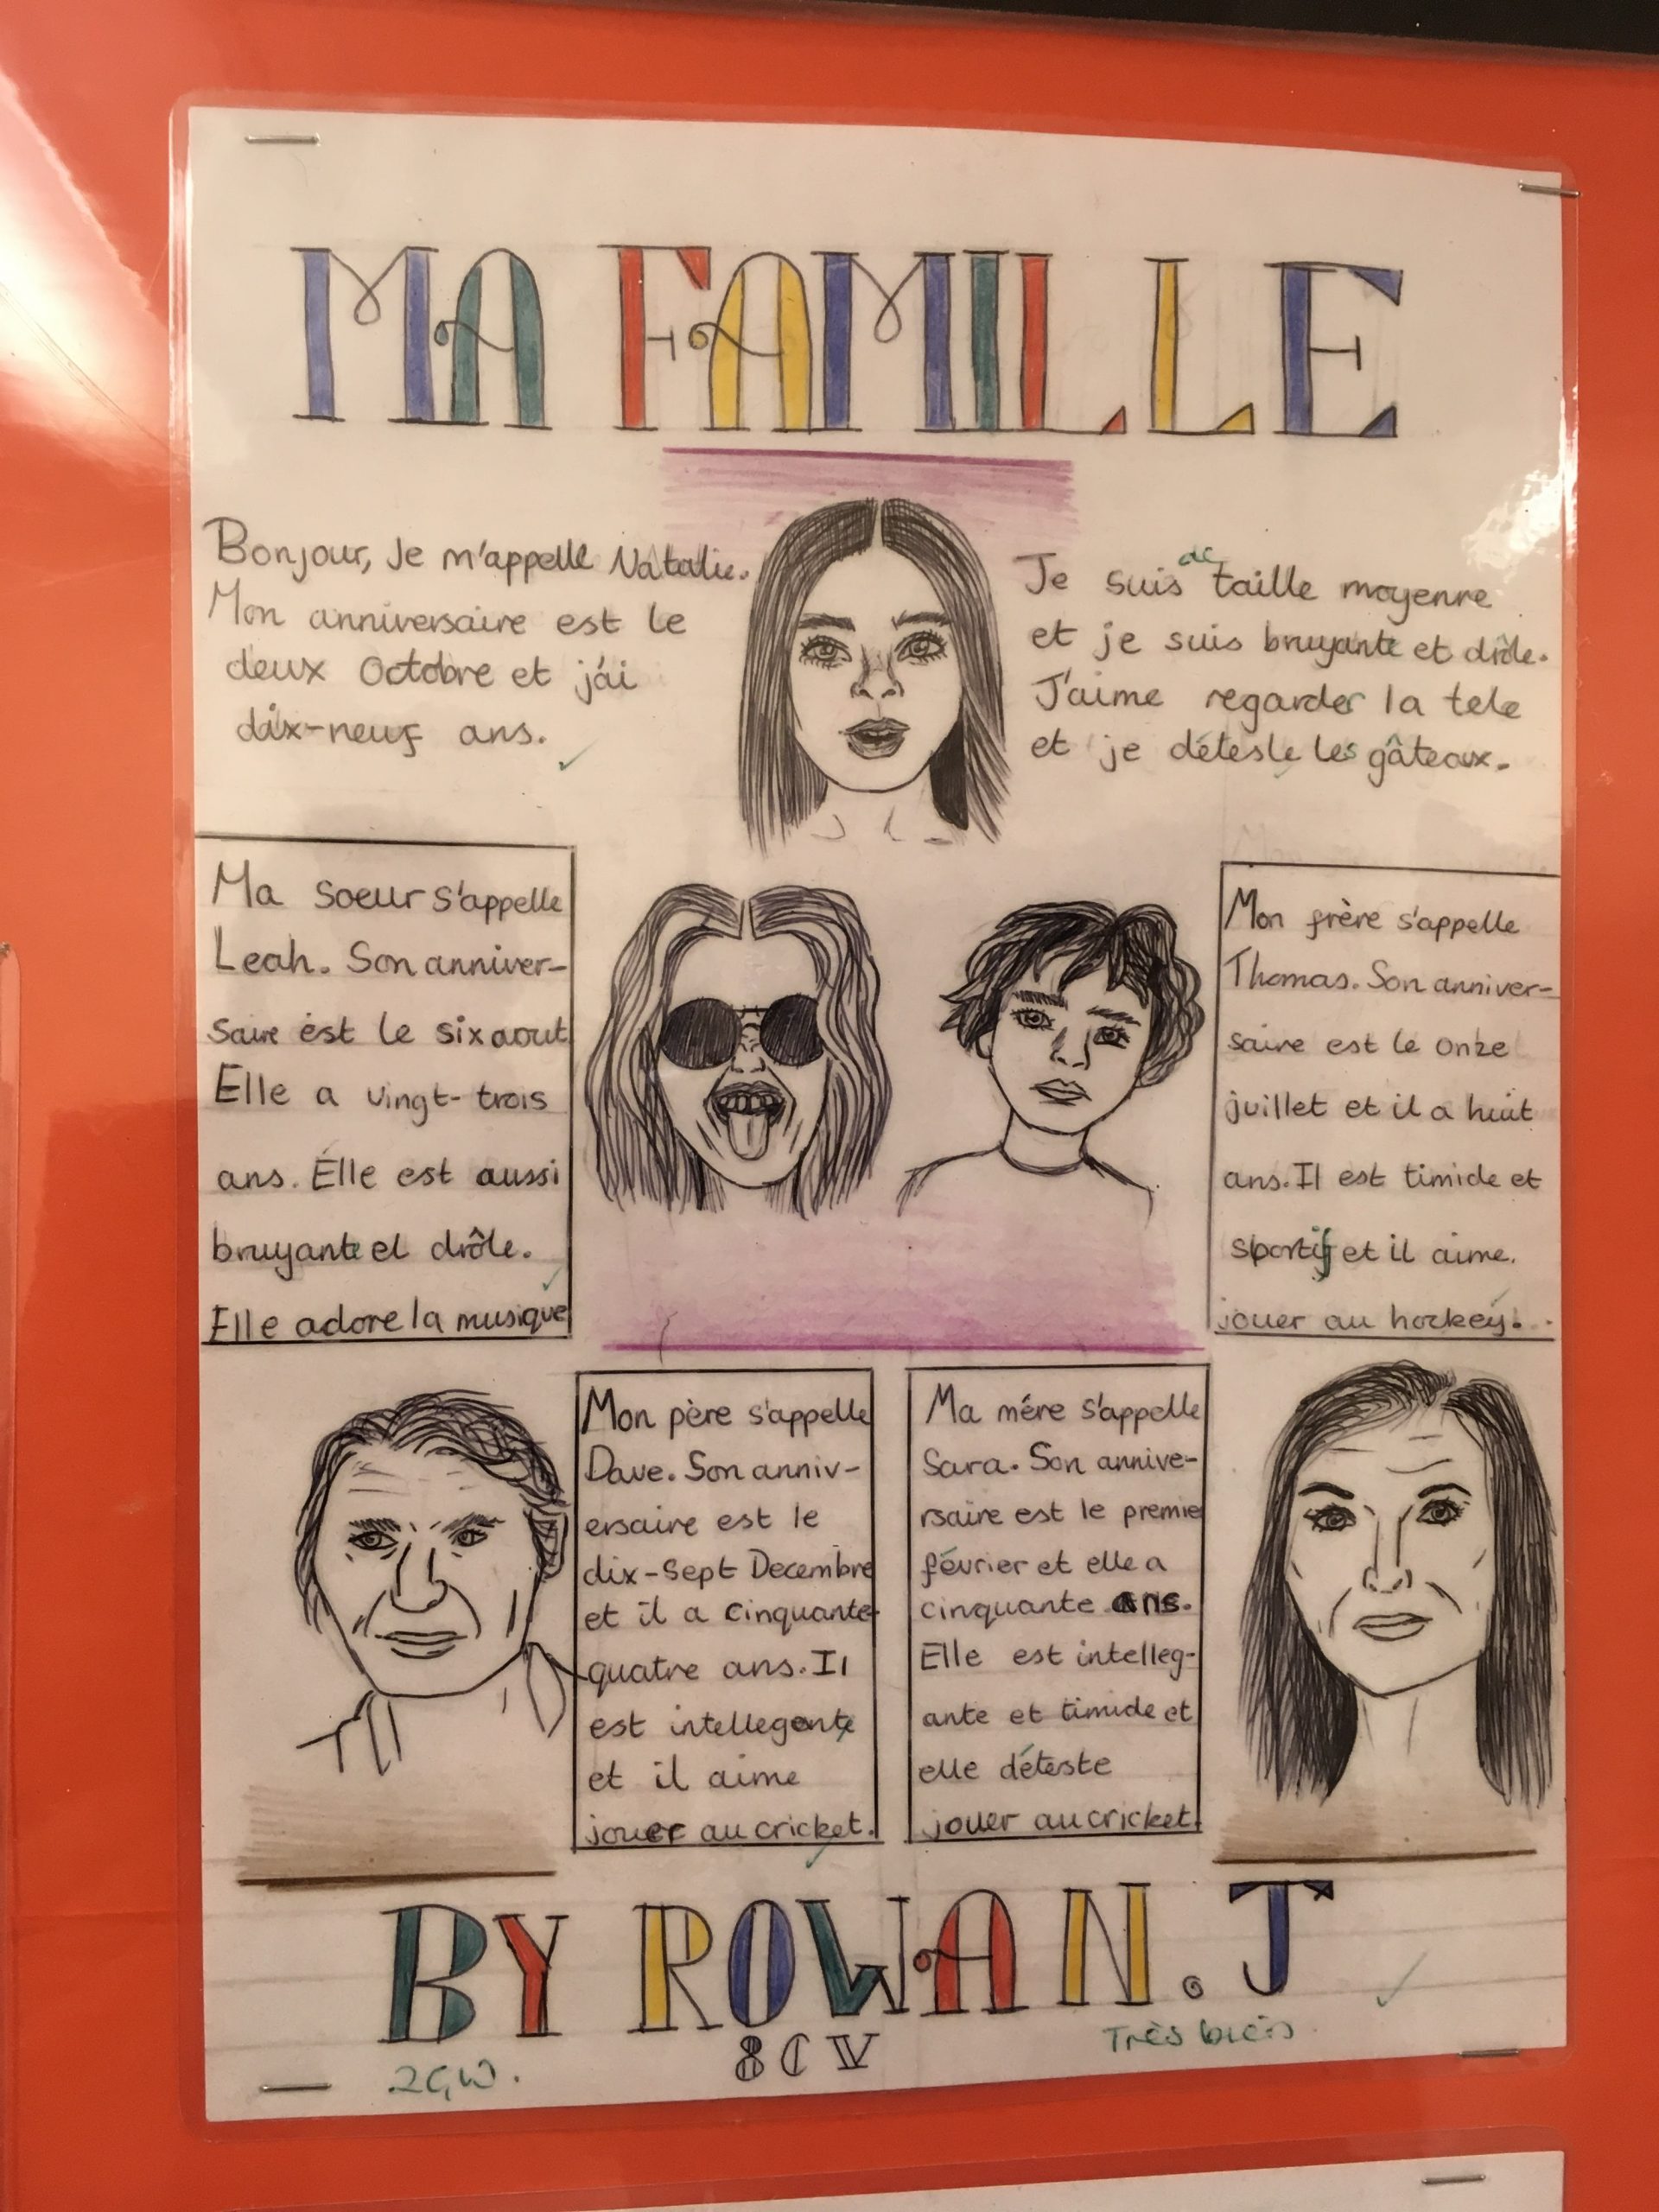 MA FAMILLE
Bonjour, Je m'appelle Natalie.
Mon anniversaire est le
deux Octobre et j'ai
dix-neuf ans.
Je suis de taille moyenne
et je suis bruyante et drôle.
J'aime regarder la tele
et je déteste les gâteaux.
Ma soeur s'appelle
Leah. Son anniver-
saire est le six aout
Elle a vingt-trois
ans. Elle est aussi
bruyante et drôle.
Elle adore la musique
Mon frère s'appelle
Thomas. Son anniver-
saire est le onze
juillet et il a huit
ans. Il est timide et
sportif et il aime.
jouer au hockey.
Mon père s'appelle
Dave. Son anniv-
ersaire est le
dix-Sept Decembre
et il a cinquante-
quatre ans. Il
est intellegente
et il aime
jouer au cricket.
Ma mére s'appelle
Sara. Son annive-
rsaire est le premie
février et elle a
cinquante ans.
Elle est intelleg-
ante et timide et
elle déteste
jouer au cricket.
BY ROWAN.J
8CV
Très bien